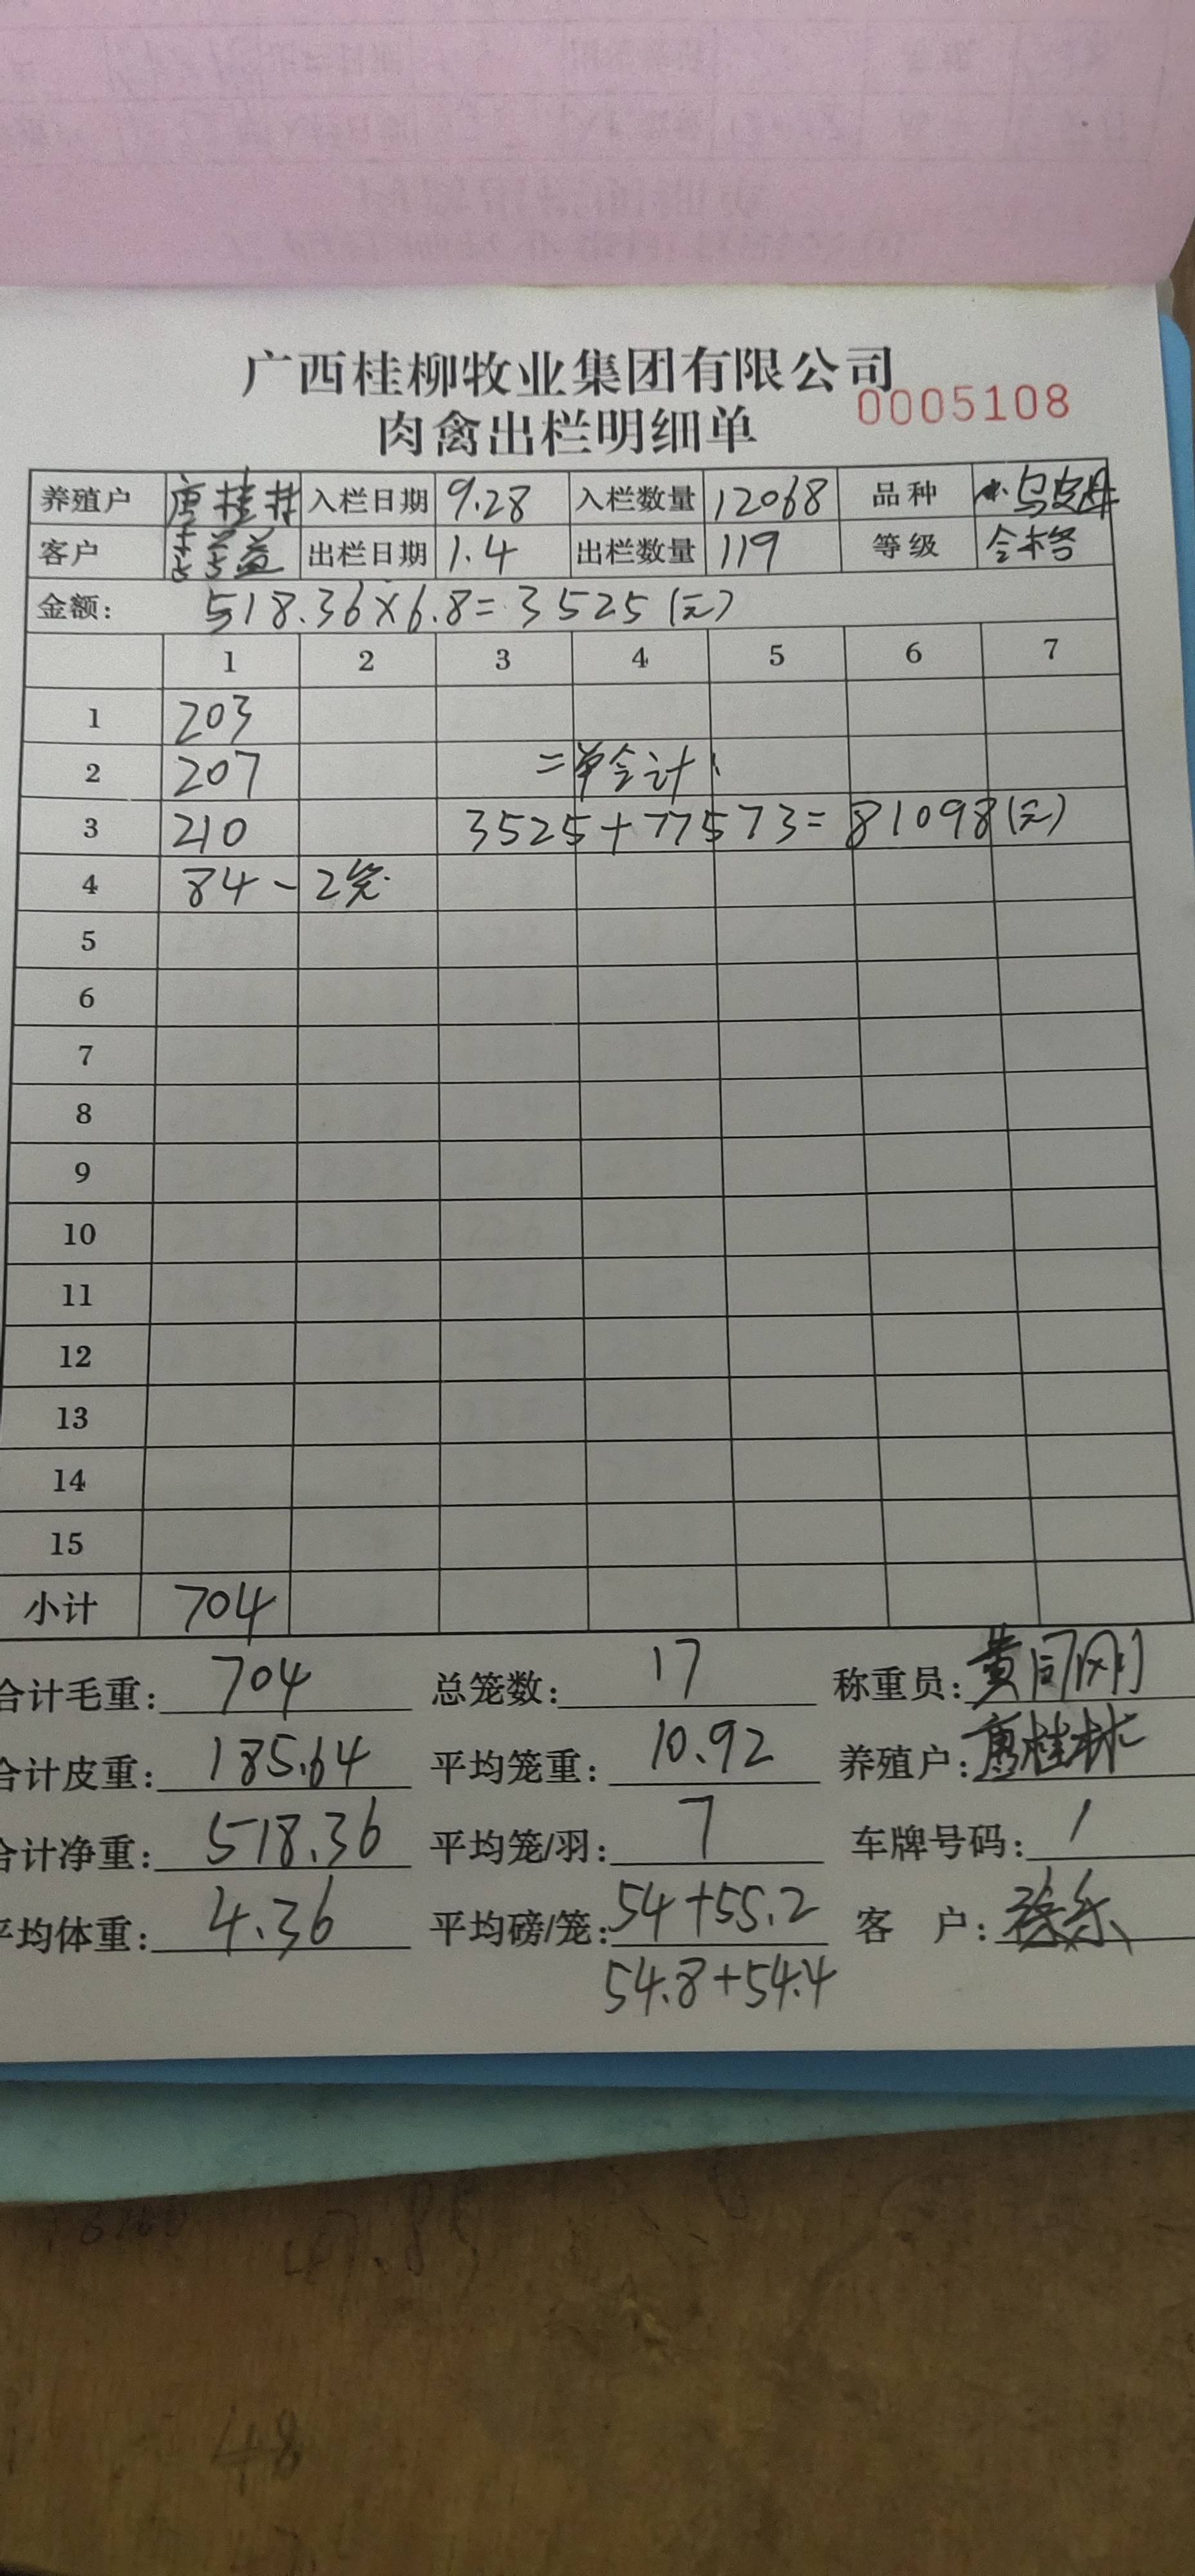 广西桂柳牧业集团有限公司
0005108
肉禽出栏明细单
养殖户 唐桂林 入栏日期 9.28 入栏数量 12068 品种 小乌皮母
客户 出栏日期 1.4 出栏数量 119 等级 合格
金额: 518.36×6.8=3525(元)
1 2 3 4 5 6 7
1 203
2 207 二单合计:
3 210 3525+77573=81098(元)
4 84-2笼
5
6
7
8
9
10
11
12
13
14
15
小计 704
合计毛重: 704 总笼数: 17 称重员:
合计皮重: 185.64 平均笼重: 10.92 养殖户: 唐桂林
合计净重: 518.36 平均笼/羽: 7 车牌号码: /
平均体重: 4.36 平均磅/笼: 54+55.2 客 户:
54.8+54.4
48